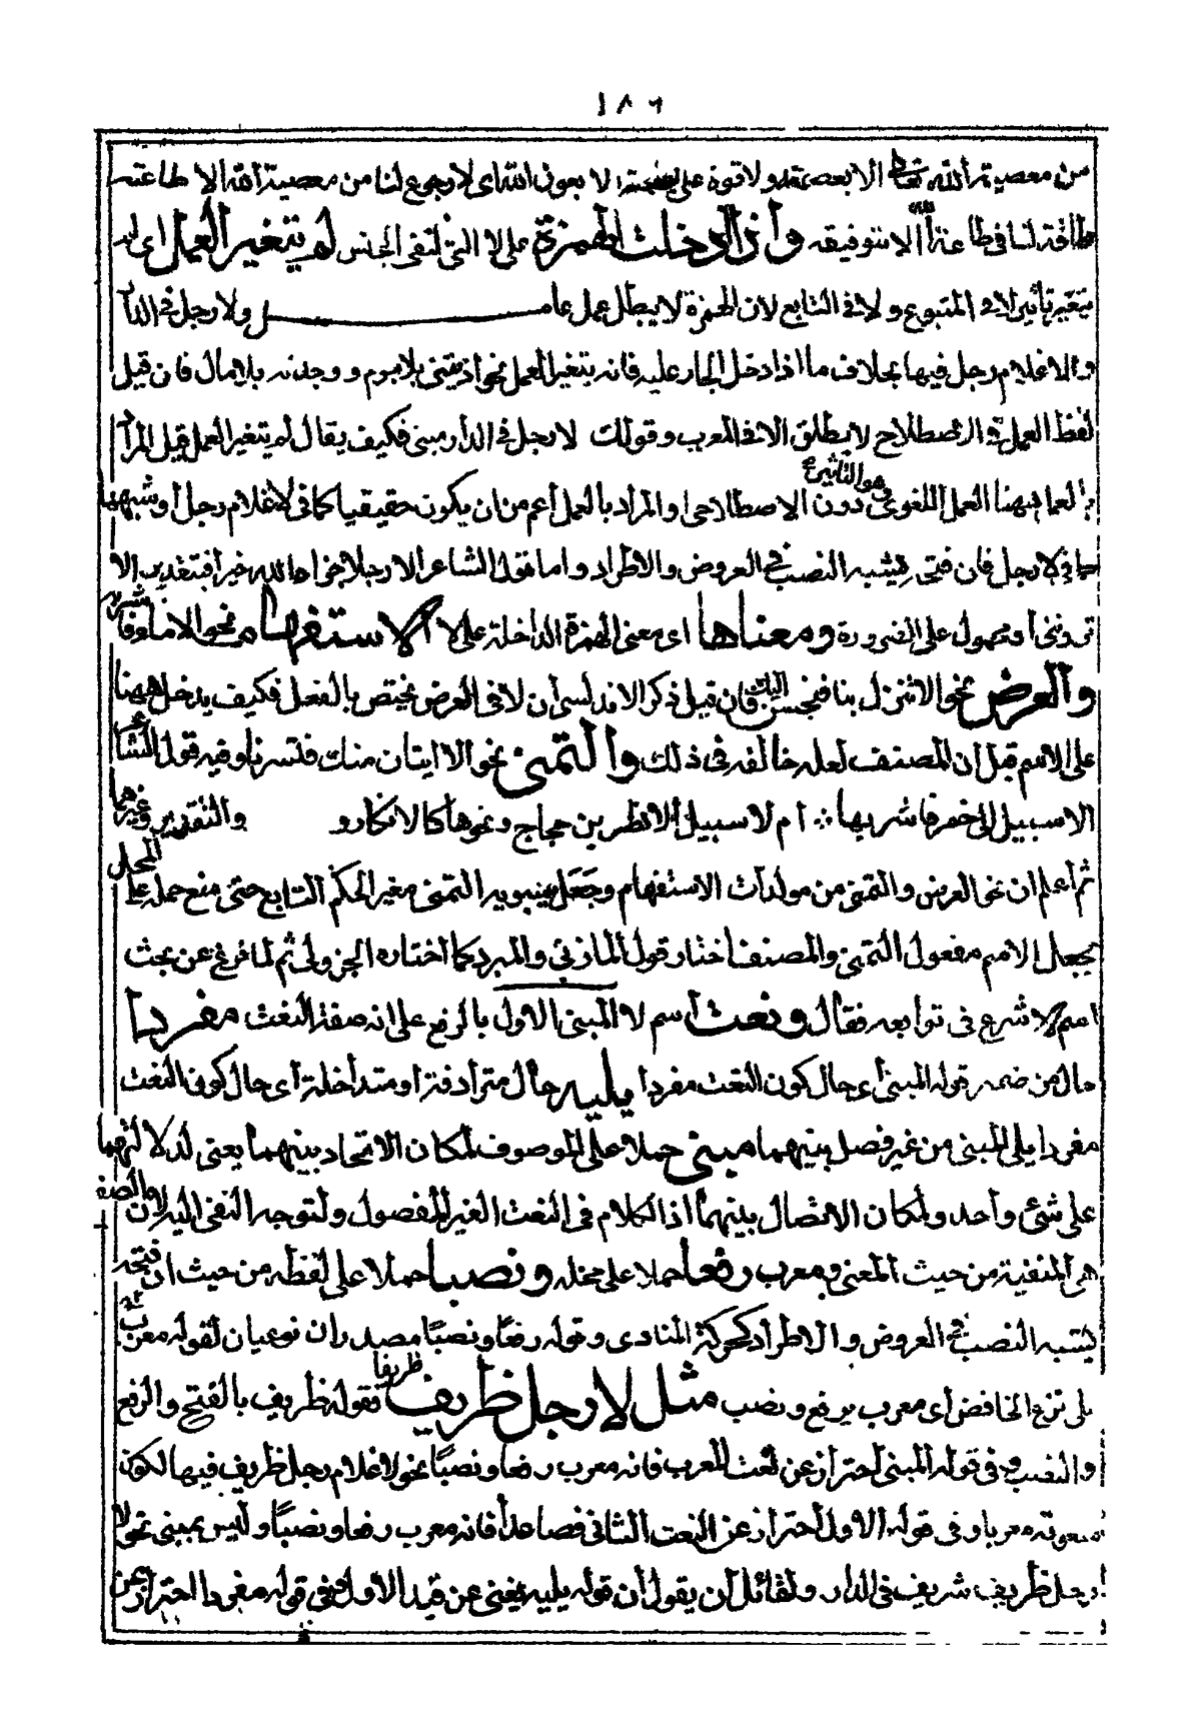 ١٨٦
من معصية الله تعالى الا بعصمته ولا قوة على الا بعون الله اى لا رجوع لنا من معصية الله الا طاعته
طاقة لنا فى طاعة الله الا بتوفيقه واذا دخلت الهمزة على لا التى لنفى الجنس لم يتغير العمل اى لم
يتغير تأثير لا فى المتبوع ولا فى التابع لان الهمزة لا يبطل عمل عامل ولا رجل فى الدار
والا غلام رجل فيها بخلاف ما اذا دخل الجار عليه فانه يتغير العمل نحو اذيتنى بلا جرم ووجدته بلا مال فان قيل
لفظ العمل فى الاصطلاح لا يطلق الا فى المعرب وقولك لا رجل فى الدار مبنى فكيف يقال لم يتغير العمل قيل المراد
بالعمل ههنا العمل اللغوى هو التأثير دون الاصطلاحى او المراد بالعمل أعم من ان يكون حقيقيا كما فى لا غلام رجل أو شبهها
كما فى لا رجل فان فتحى يشبه النصب فى العروض والاطراد واما قول الشاعر الا رجلا جزاه الله خيرا فبتقدير الا
تروننى أو محمول على الضرورة ومعناها اى معنى الهمزة الداخلة على لا الاستفهام نحو الا ماء فاشربه
والعرض نحو الا تنزل بنا فنحسن اليك فان قيل ذكر الاندلسى أن لا فى العرض يختص بالفعل فكيف يدخل ههنا
على الاسم قيل ان المصنف لعله خالفه فى ذلك والتمنى نحو الا اتيان منك فتسرنا وفيه قول الشاعر
الا سبيل الى خمر فاشربها ∴ ام لا سبيل الا نظر بن حجاج ونحوها كالانكار و والتقدير وغيرهما
ثم أعلم ان نحو العرض والتمنى من مولدات الاستفهام وجعل سيبويه التمنى مغير الحكم التابع حتى منع حمله على المحل
يجعل الاسم مفعول التمنى والمصنف اختار قول المازنى والمبرد كما اختاره الجزولى ثم لما فرغ عن بحث
اسم لا شرع فى توابعه فقال ونعت اسم لا المبنى الاول بالرفع على انه صفة النعت مفردا
حال من ضمير قوله المبنى أى حال كون النعت مفردا يليه حال مترادفة او متداخلة أى حال كون النعت
مفردا يلى المبنى من غير فصل بينهما مبنى حملا على الموصوف لمكان الاتحاد بينهما يعنى لدلالتهما
على شئ واحد ولمكان الاتصال بينهما اذ الكلام فى النعت الغير المفصول ولتوجه النفى اليه لان والصفة
هى المنفية من حيث المعنى ومعرب رفعا حملا على محله ونصبا حملا على لفظه من حيث ان فتحته
يشبه النصب فى العروض والاطراد كحركة المنادى وقوله رفعا ونصبا مصدران نوعيان لقوله معرب
بلى نزع الخافض أى معرب برفع ونصب مثل لا رجل ظريف ظريفا فقوله ظريف بالفتح والرفع
والنصب وفى قوله المبنى احتراز عن نعت المعرب فانه معرب رفعا ونصبا نحو لا غلام رجل ظريف فيها لكون
منعوته معربا وفى قوله الاول احتراز عن النعت الثانى فصاعدا فانه معرب رفعا ونصبا وليس بمبنى نحو لا
رجل ظريف شريف فى الدار ولقائل أن يقول أن قوله يليه يغنى عن قيد الاول وفى قوله مفردا احتراز عن